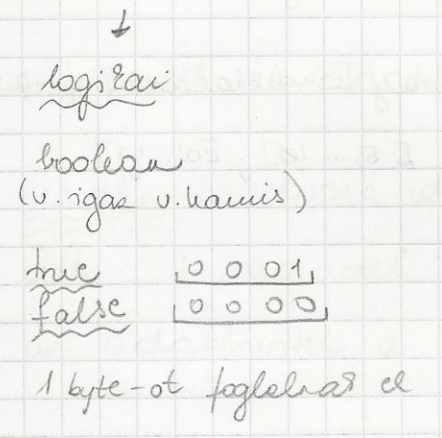 logikai
boolean
(v. igaz v. hamis)
true 0 0 0 1
false 0 0 0 0
1 byte-ot foglalnak el